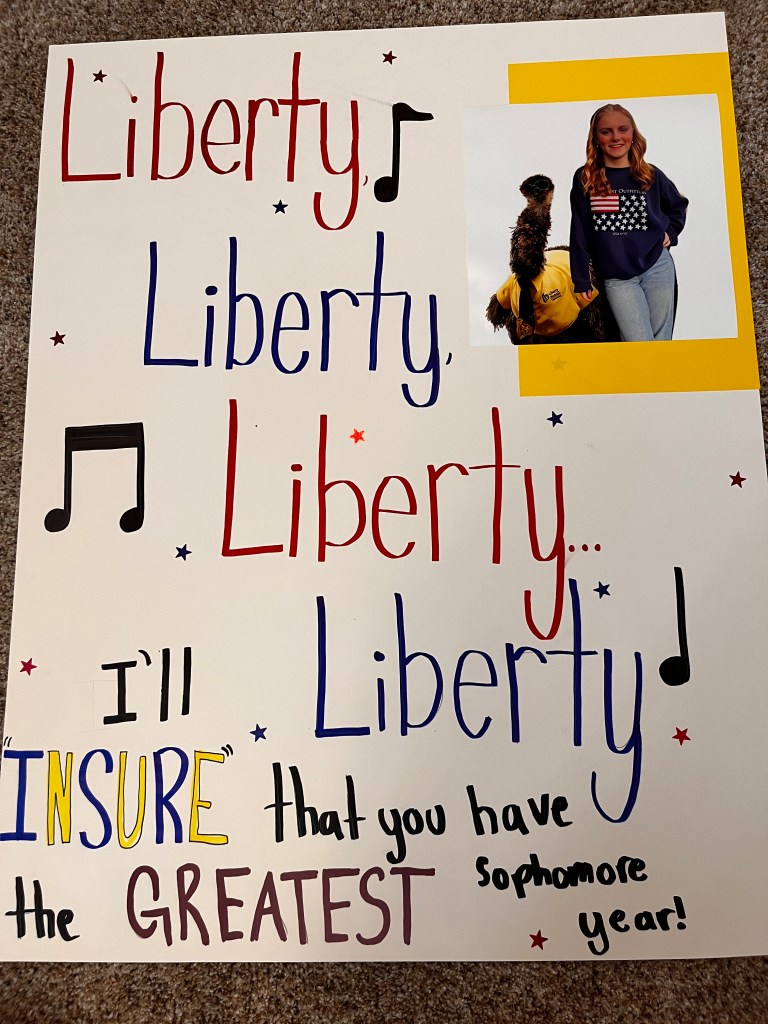 Liberty,
Liberty,
Liberty...
Liberty
I'll
"INSURE" that you have
the GREATEST sophomore
year!